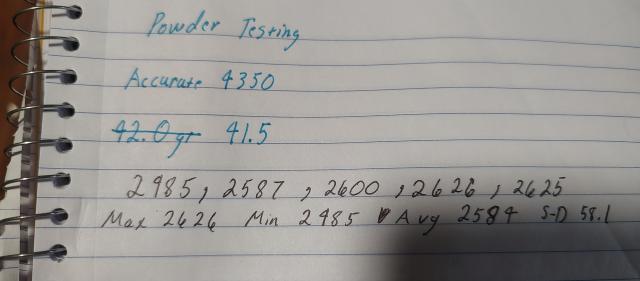 Powder Testing
Accurate 4350
42.0gr 41.5
2485, 2587, 2600, 2626, 2625
Max 2626 Min 2485 Avg 2584 S-D 58.1